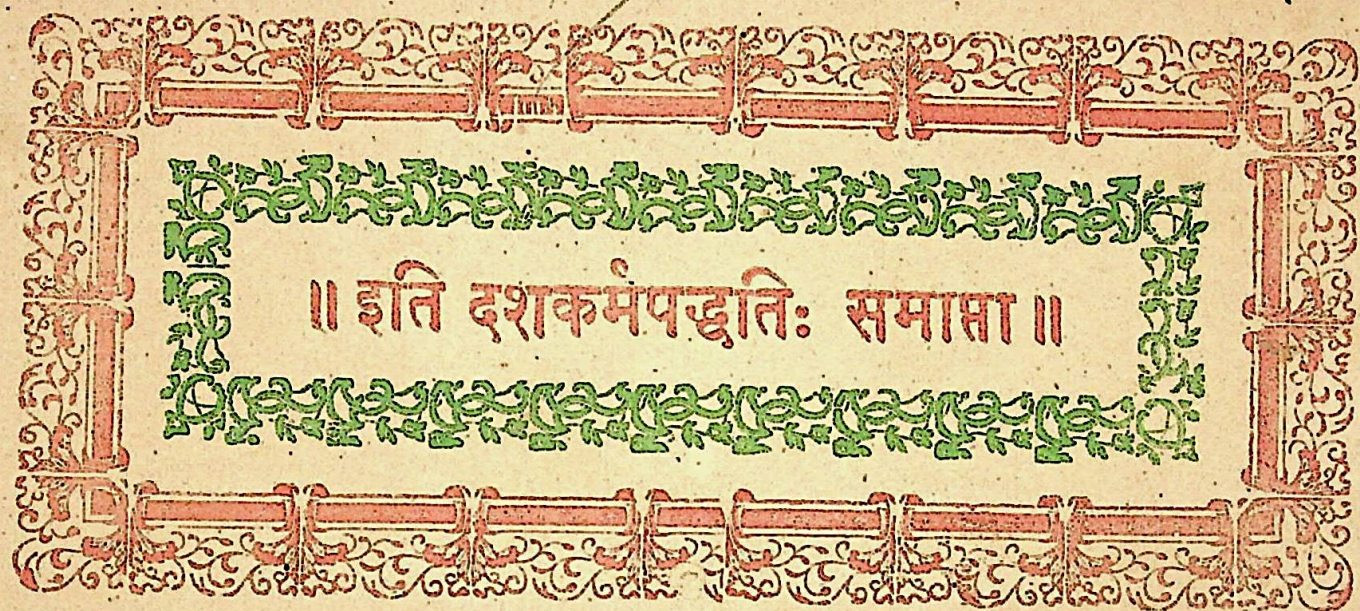 ॥ इति दशकर्मपद्धतिः समाप्ता ॥